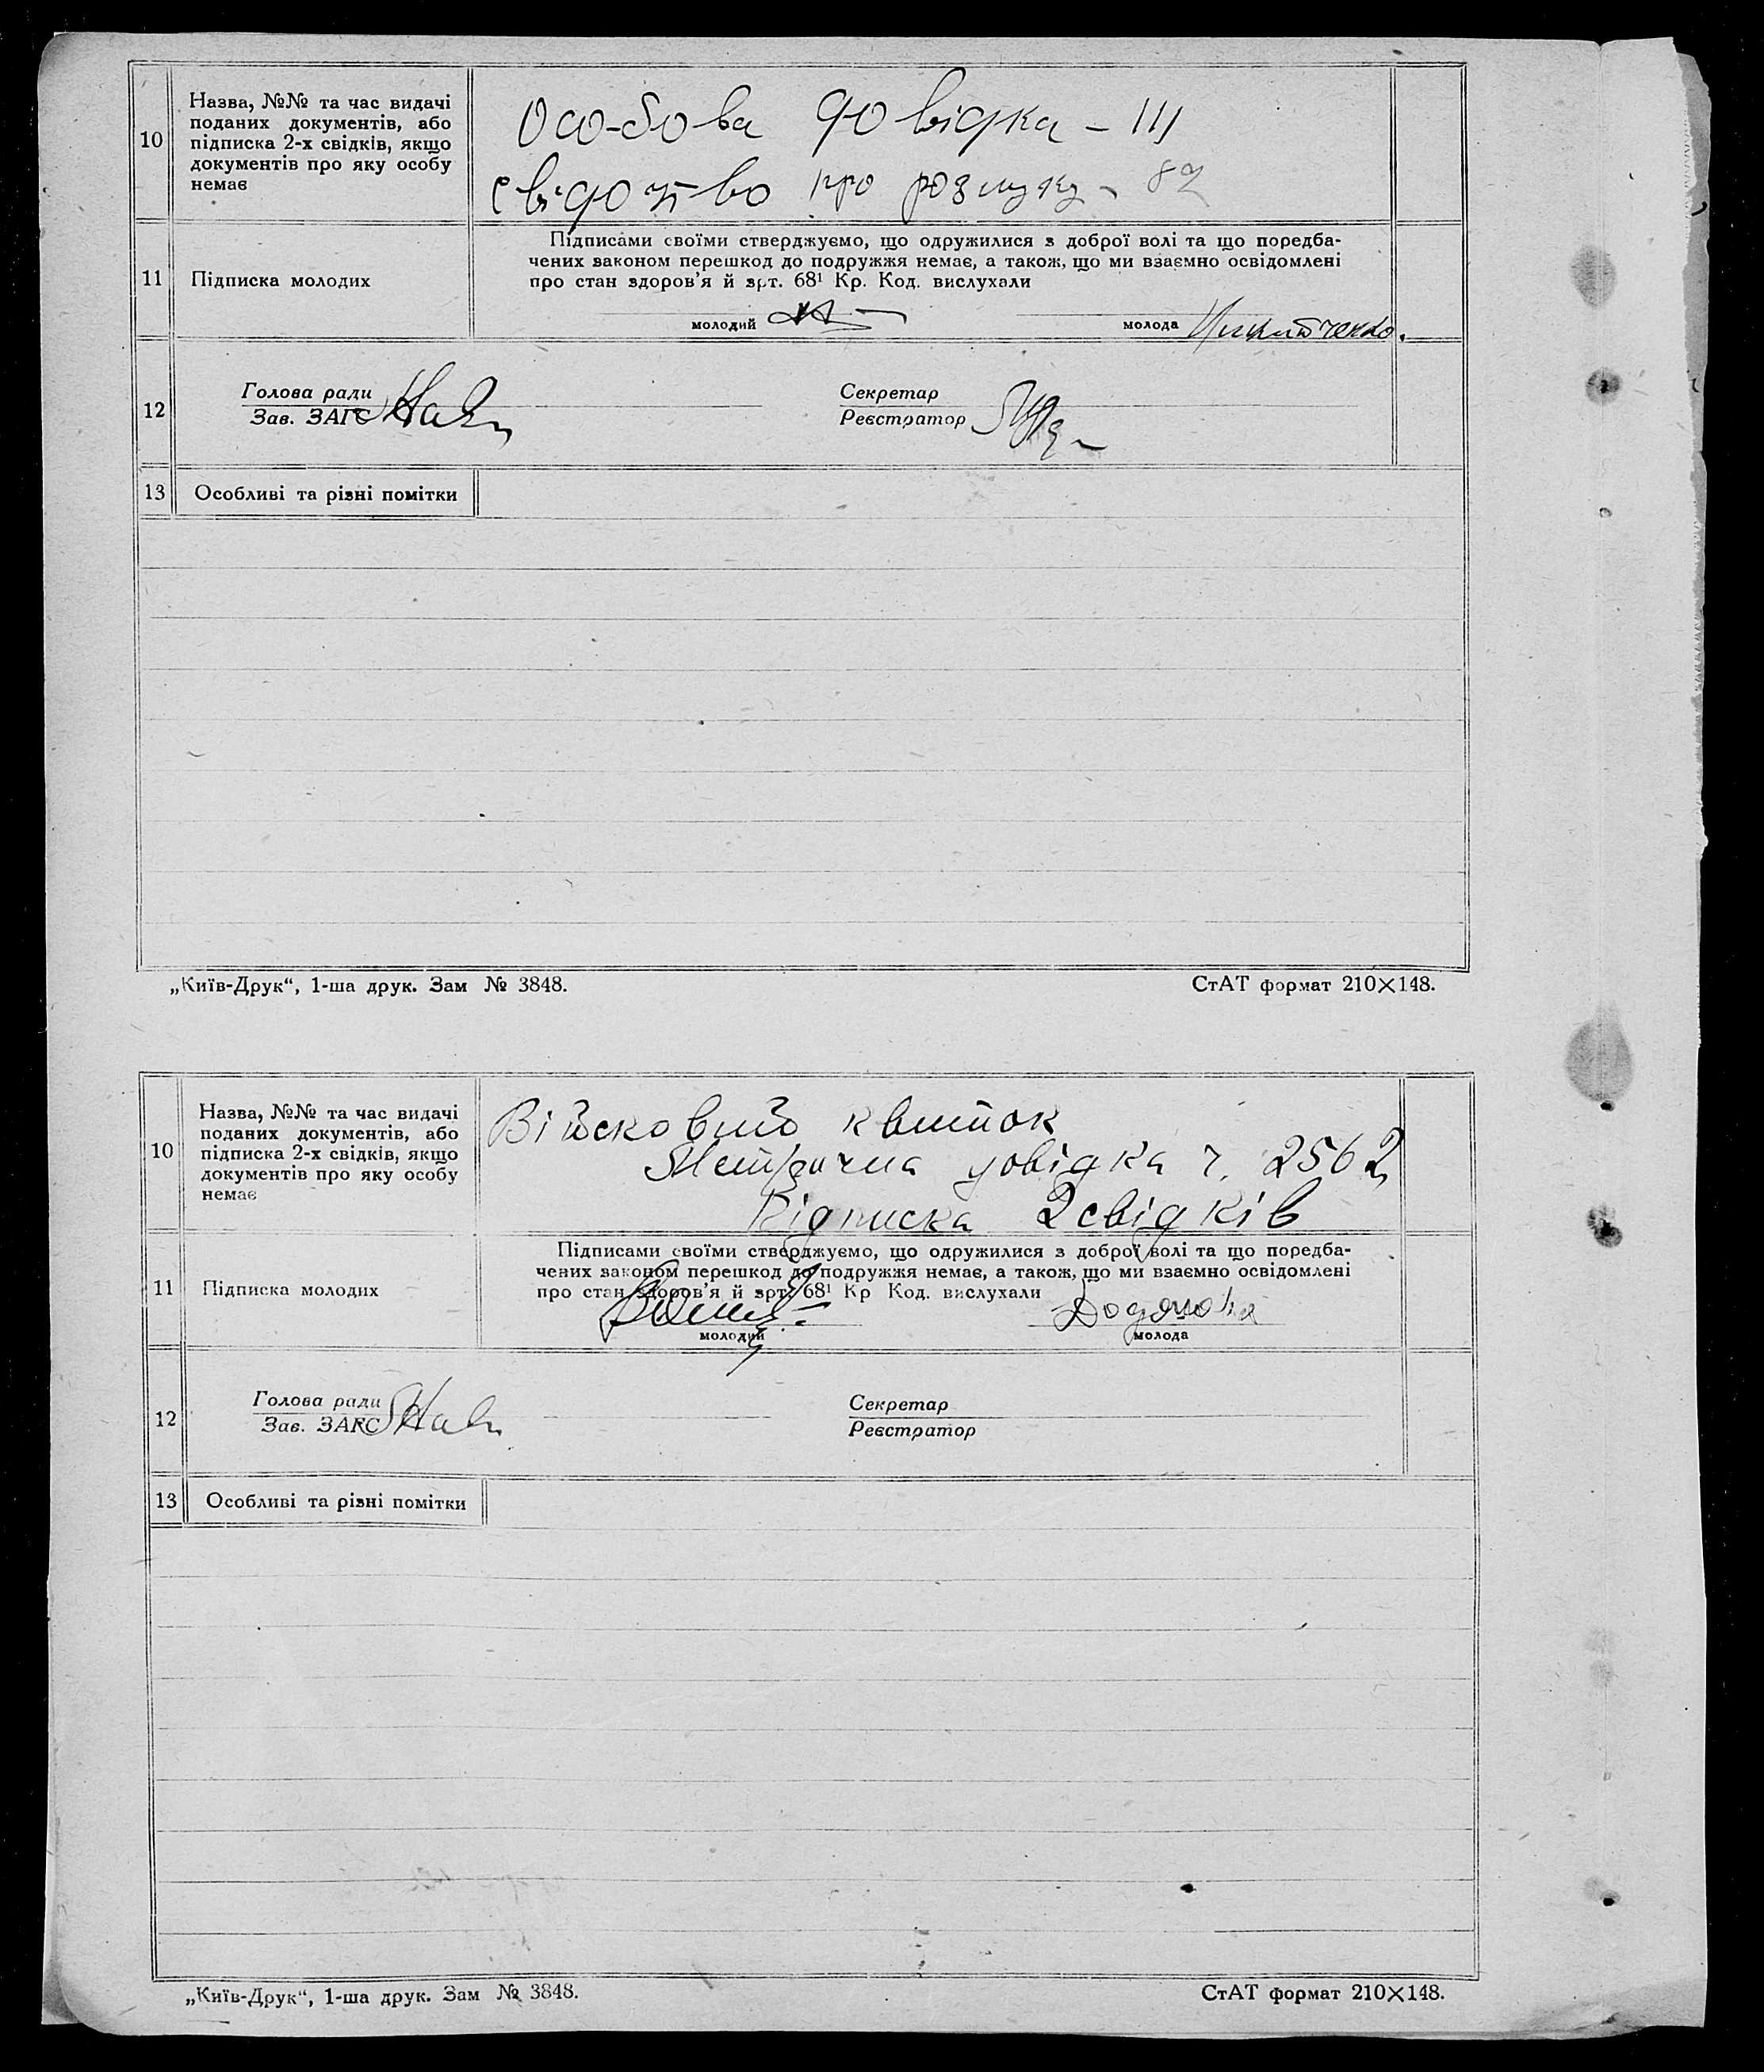 10
Назва, №№ та час видачі
поданих документів, або
підписка 2-х свідків, якщо
документів про яку особу
немає
Особова довідка – 111
свідоцтво про розлуку – 82
11
Підписка молодих
Підписами своїми стверджуємо, що одружилися з доброї волі та що поредба-
чених законом перешкод до подружжя немає, а також, що ми взаємно освідомлені
про стан здоров'я й арт. 68¹ Кр. Код. вислухали
молодий
молода Никитченко.
12
Голова ради
Зав. ЗАГС
Секретар
Реєстратор
13
Особливі та різні помітки
„Київ-Друк“, 1-ша друк. Зам № 3848.
СтАТ формат 210×148.
10
Назва, №№ та час видачі
поданих документів, або
підписка 2-х свідків, якщо
документів про яку особу
немає
Військовий квиток
Метрична довідка ч. 2562
Підписка 2 свідків
11
Підписка молодих
Підписами своїми стверджуємо, що одружилися з доброї волі та що поредба-
чених законом перешкод до подружжя немає, а також, що ми взаємно освідомлені
про стан здоров'я й арт. 68¹ Кр Код. вислухали
молодий
молода
12
Голова ради
Зав. ЗАГС
Секретар
Реєстратор
13
Особливі та різні помітки
„Київ-Друк“, 1-ша друк. Зам № 3848.
СтАТ формат 210×148.